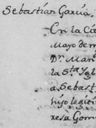 Sebastian Garcia.
En la Ca
Mayo de m
Dr. Man
la Sta Ygl
a Sebast
hijo legiti
resa Gom